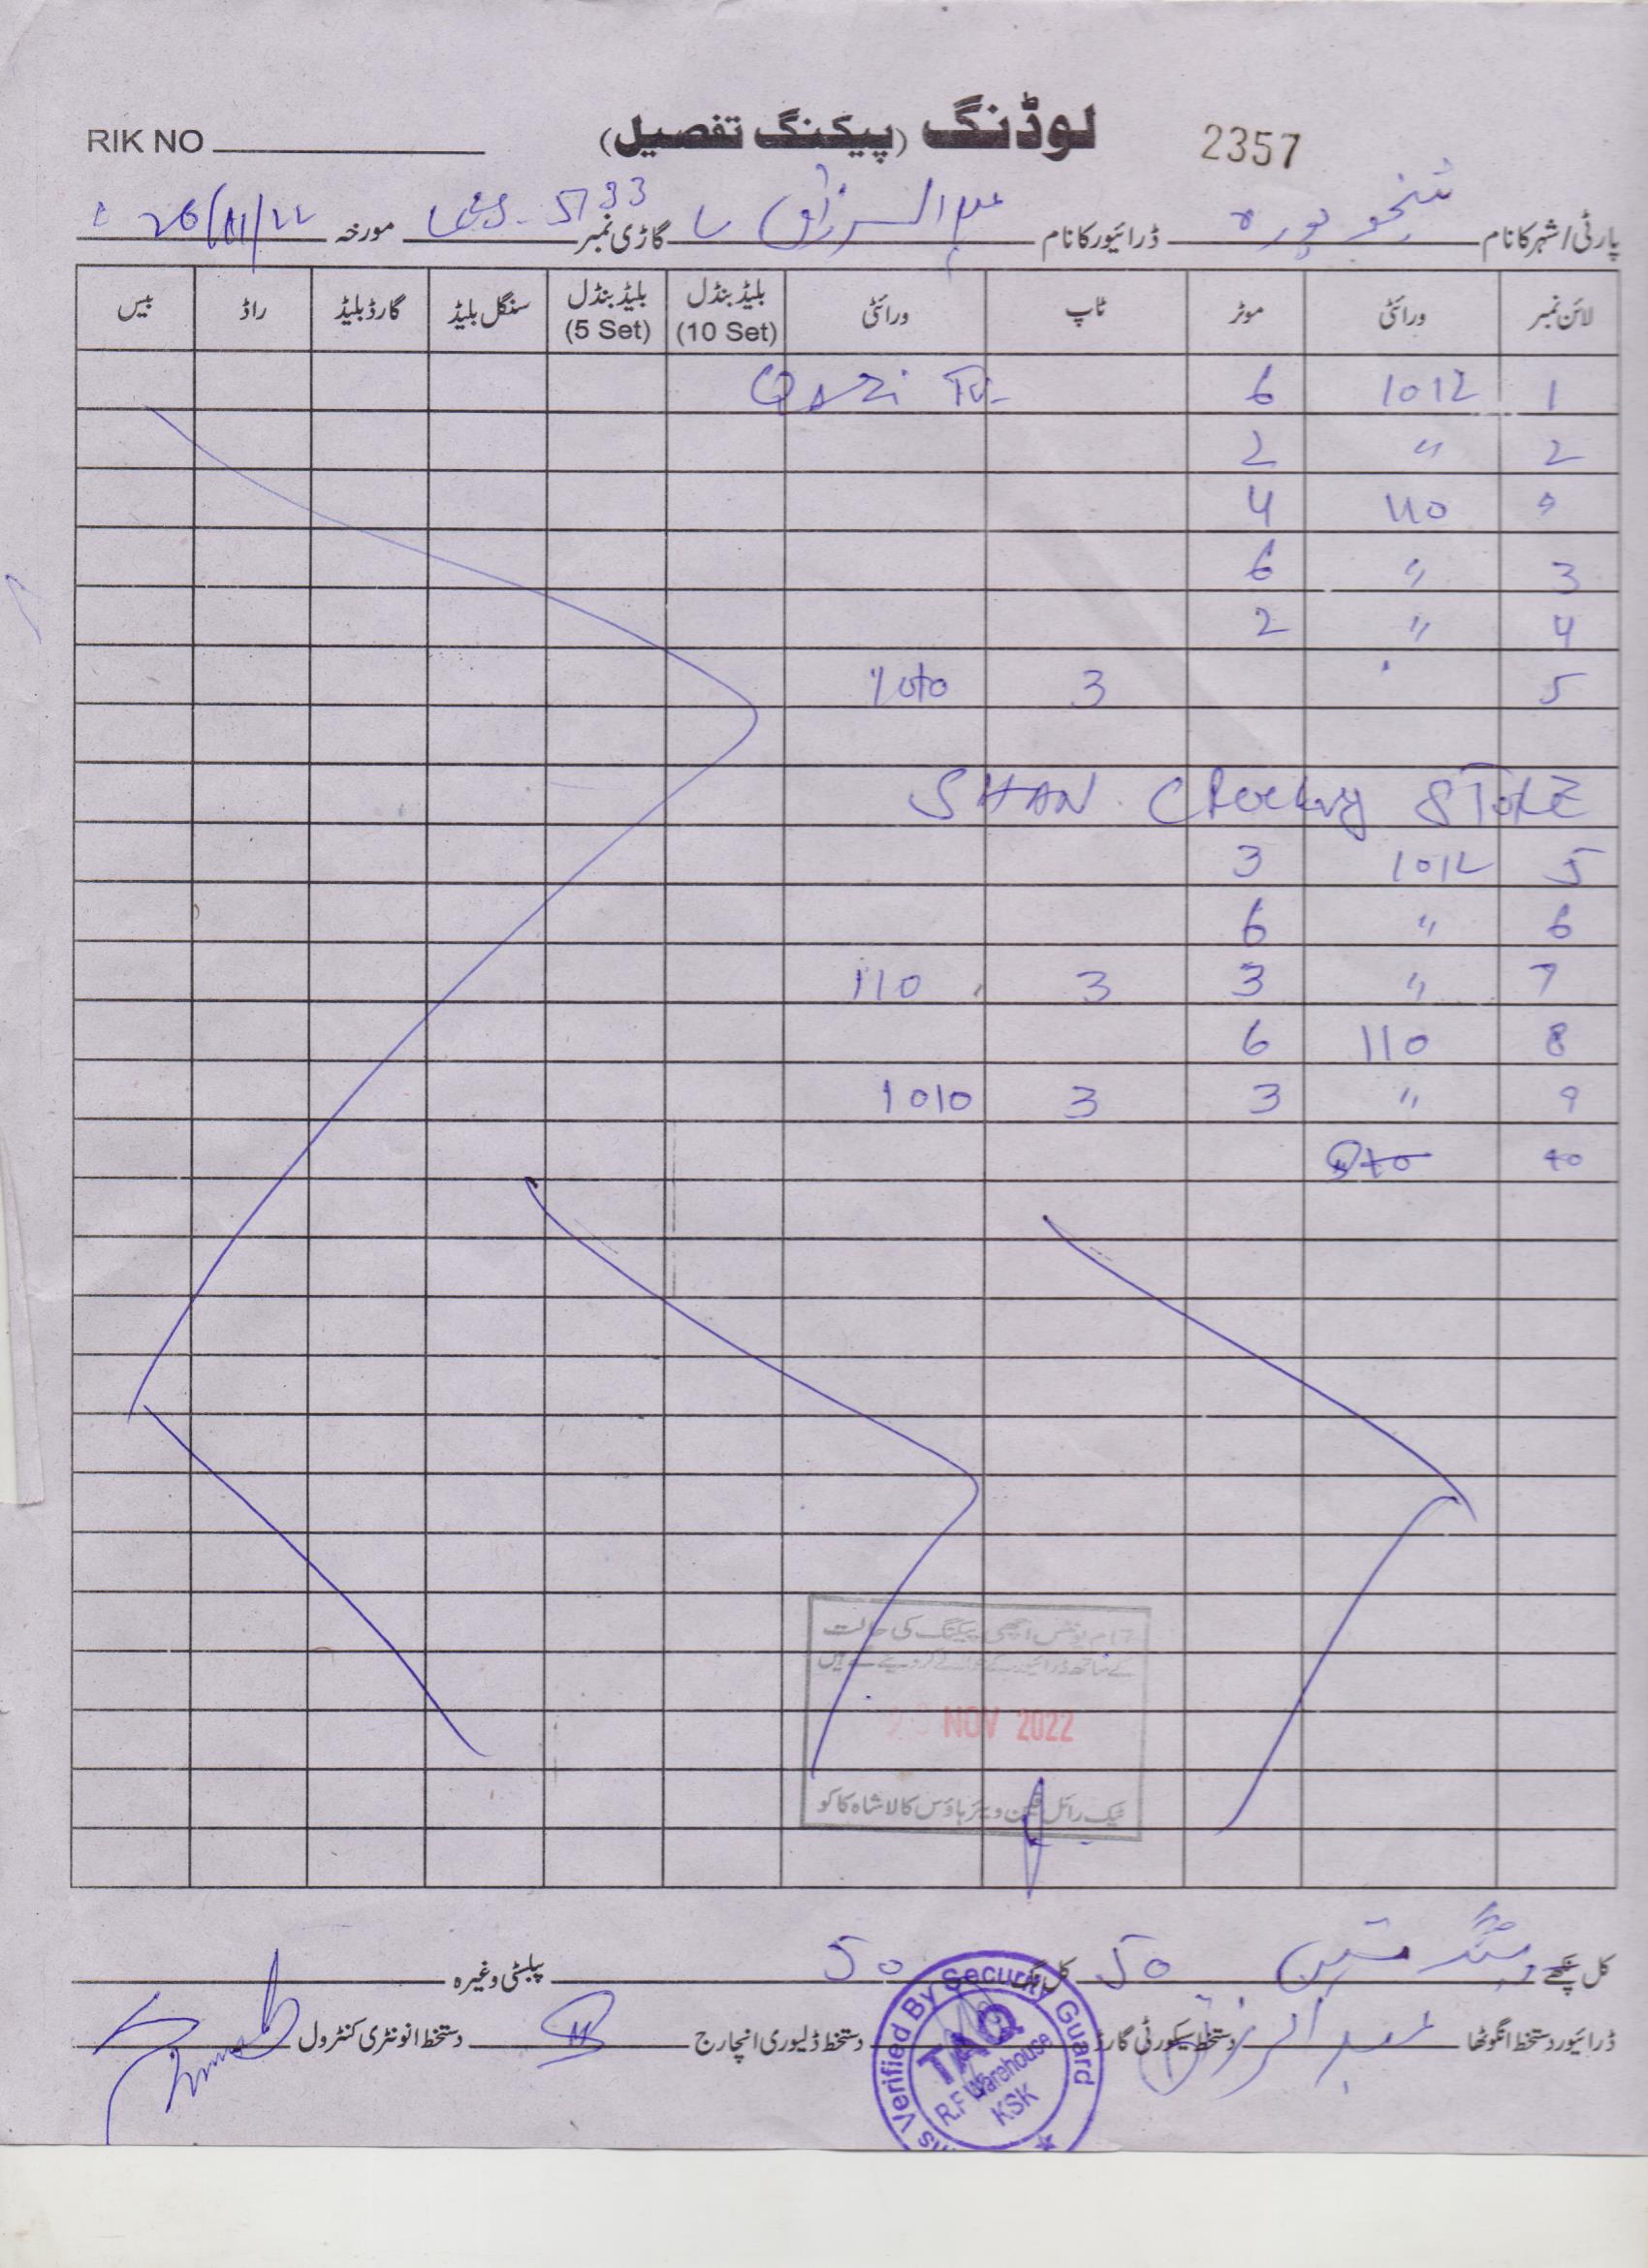 RIK NO
لوڈنگ (پیکنگ تفصیل)
2357
پارٹی/شہر کا نام شیخوپورہ ڈرائیور کا نام عبدالرزاق گاڑی نمبر 5733 مورخہ 26/11/22
لائن نمبر ورائٹی موٹر ٹاپ ورائٹی بلیڈ بنڈل (10 Set) بلیڈ بنڈل (5 Set) سنگل بلیڈ گارڈ بلیڈ راڈ بیس
1 1012 6 QAZi
2 " 2
" 110 4
3 " 6
4 " 2
5 3
SHAN Crockry STORE
5 1012 3
6 " 6
7 " 3 3 110
8 110 6
9 " 3 3 1010
کی حالت
NOV 2022
ٹیک رائل فین ویئر ہاؤس کالا شاہ کاکو
کل پنکھے 50 کل 50 بلٹی وغیرہ
ڈرائیور دستخط انگوٹھا عبدالرزاق دستخط سیکورٹی گارڈ دستخط ڈلیوری انچارج دستخط انونٹری کنٹرول
Verified By Security Guard
TAQ
R.F Warehouse
KSK